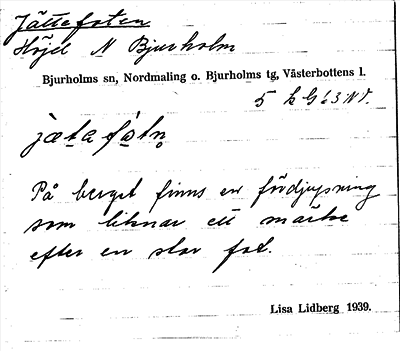 Jättefoten
Höjd N Bjurholm
Bjurholms sn, Nordmaling o. Bjurholms tg, Västerbottens l.
På berget finns en fördjupning
som liknar ett märke
efter en stor fot.
Lisa Lidberg 1939.